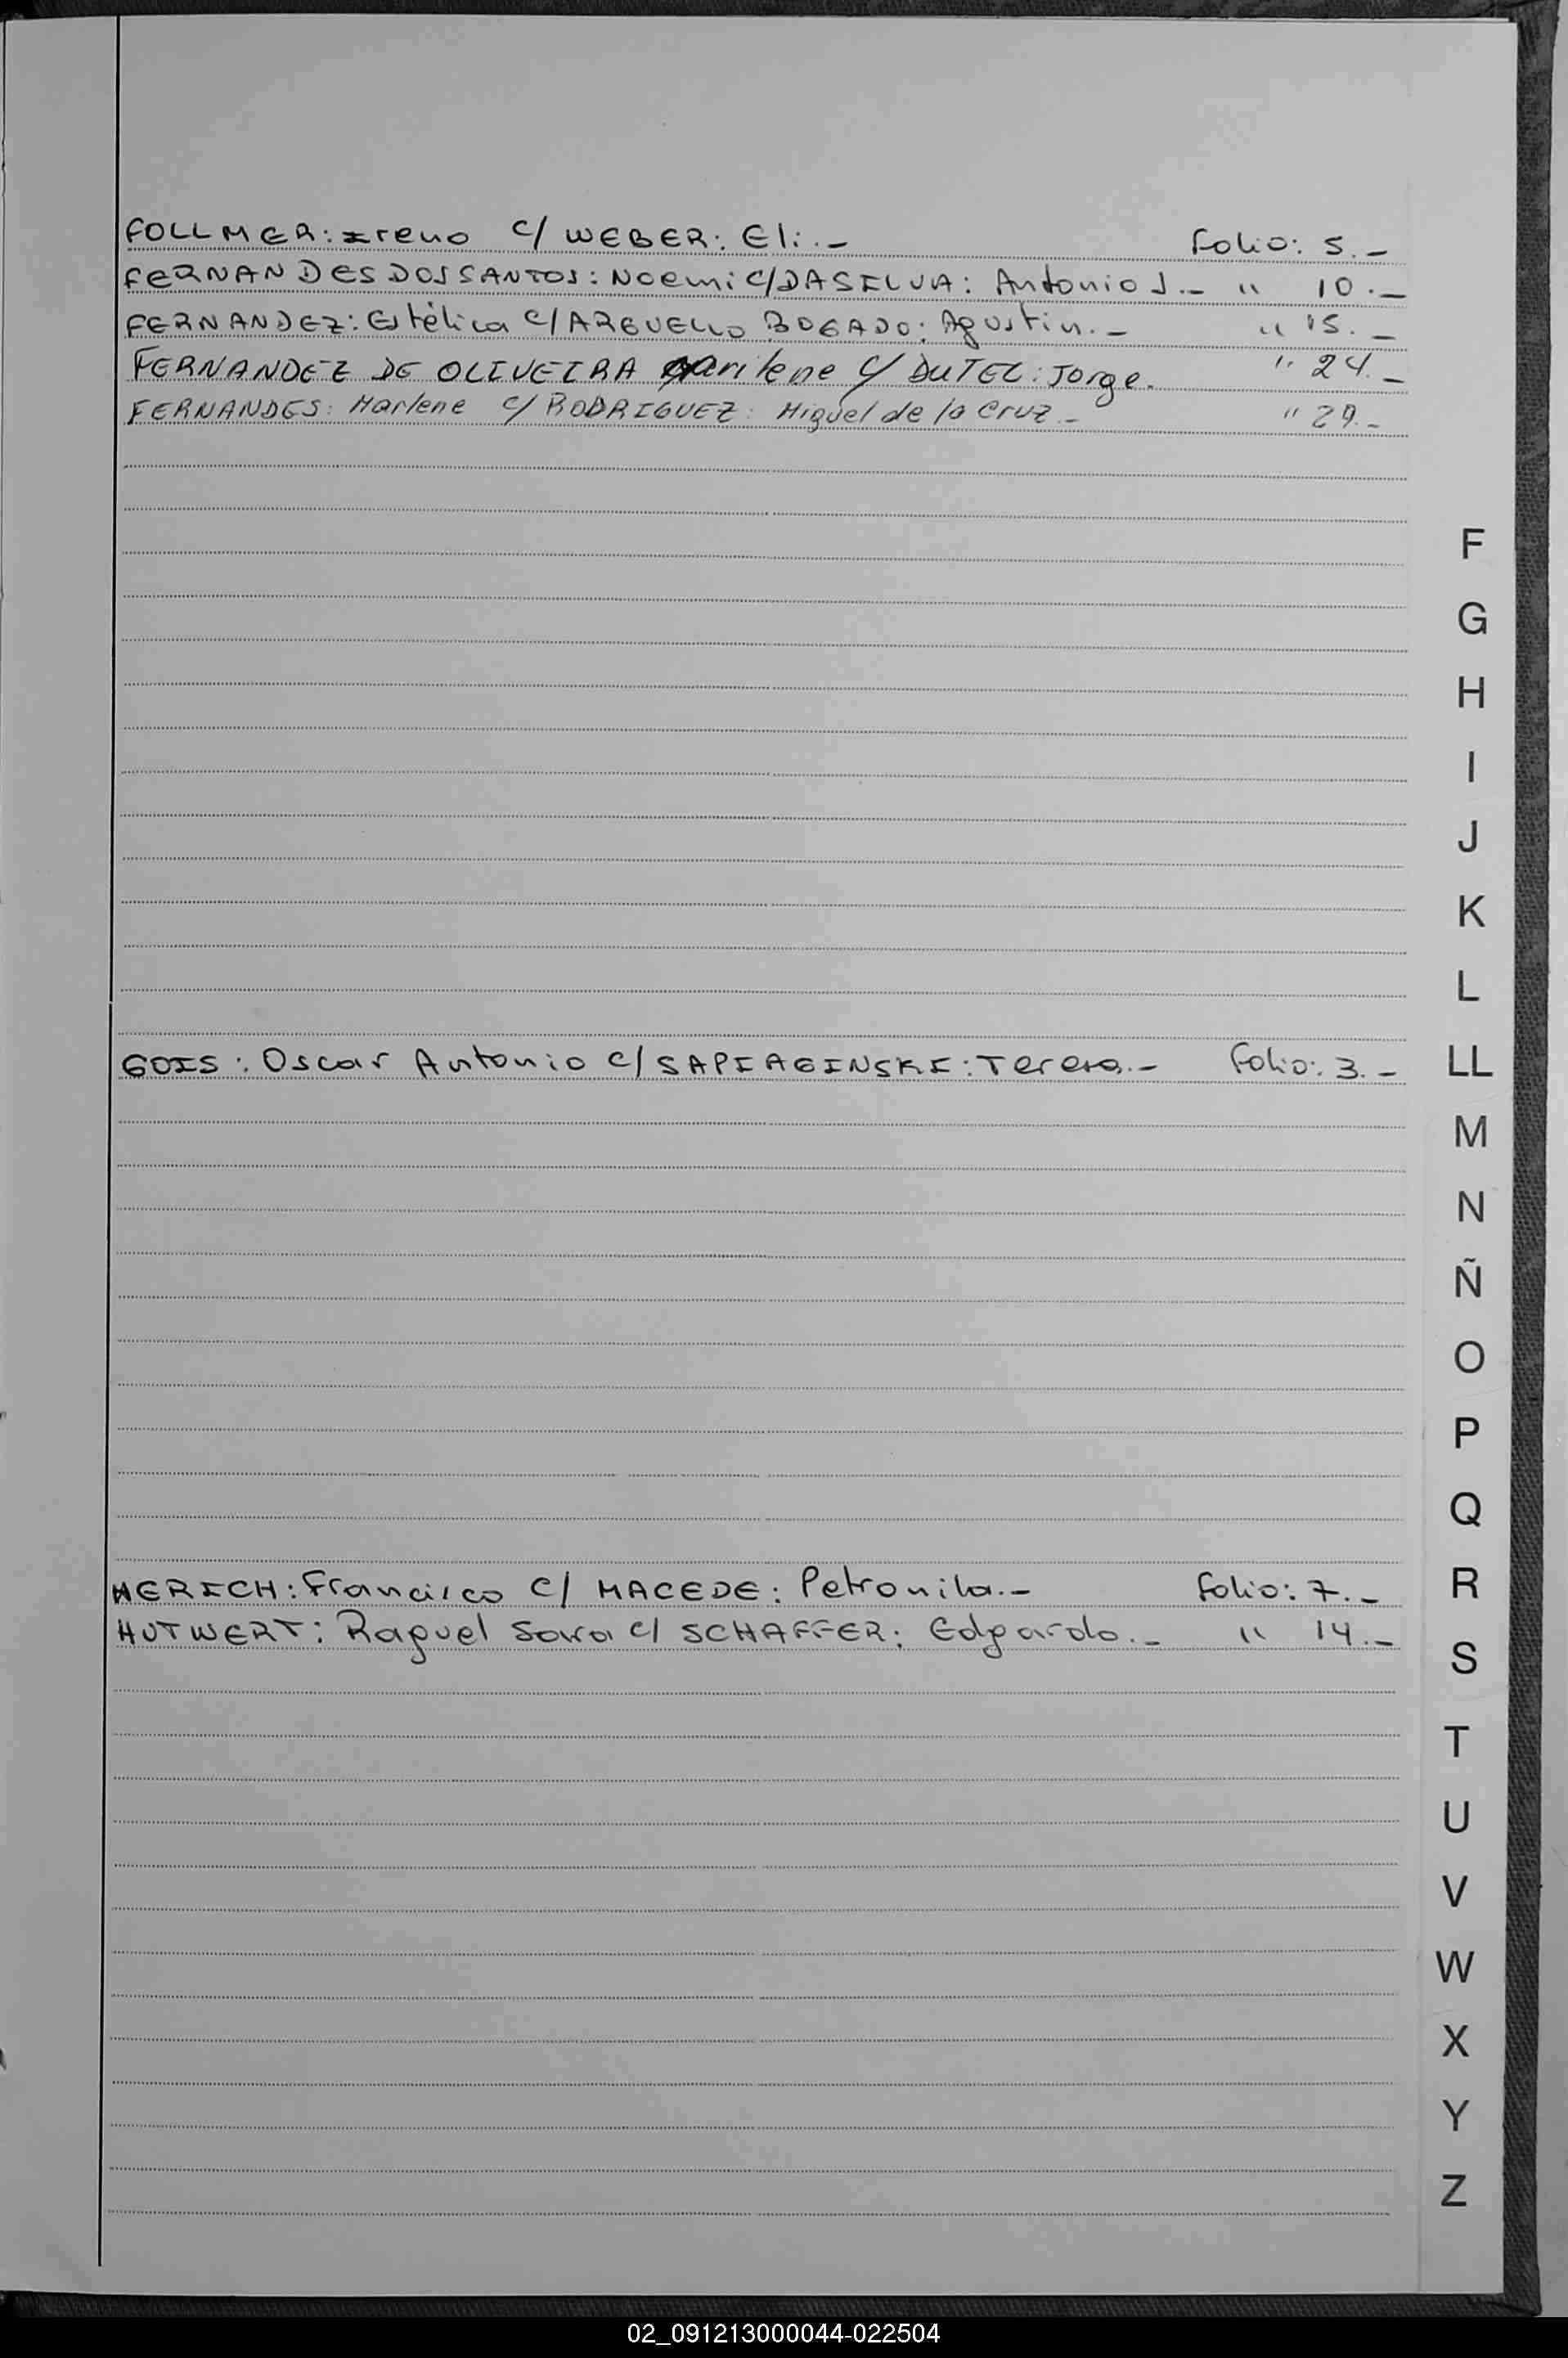 FOLLMER: Ireno c/ WEBER: Eli.- Folio: 5.-
FERNANDES DOS SANTOS: Noemi c/ DASILVA: Antonio J.- " 10.-
FERNANDEZ: Estélica c/ ARGUELLO BOGADO: Agustin.- " 15.-
FERNANDEZ DE OLIVEIRA Marilene c/ DUTEL: Jorge. " 24.-
FERNANDES: Marlene c/ RODRIGUEZ: Miguel de la Cruz.- " 29.-
F
G
H
I
J
K
L
GOIS: Oscar Antonio c/ SAPIAGINSKI: Teresa.- Folio: 3.-
LL
M
N
Ñ
O
P
Q
HERICH: Francisco c/ MACEDE: Petronila.- Folio: 7.-
R
HUTWERT: Raquel Sara c/ SCHAFFER: Edgardo.- " 14.-
S
T
U
V
W
X
Y
Z
02_091213000044-022504